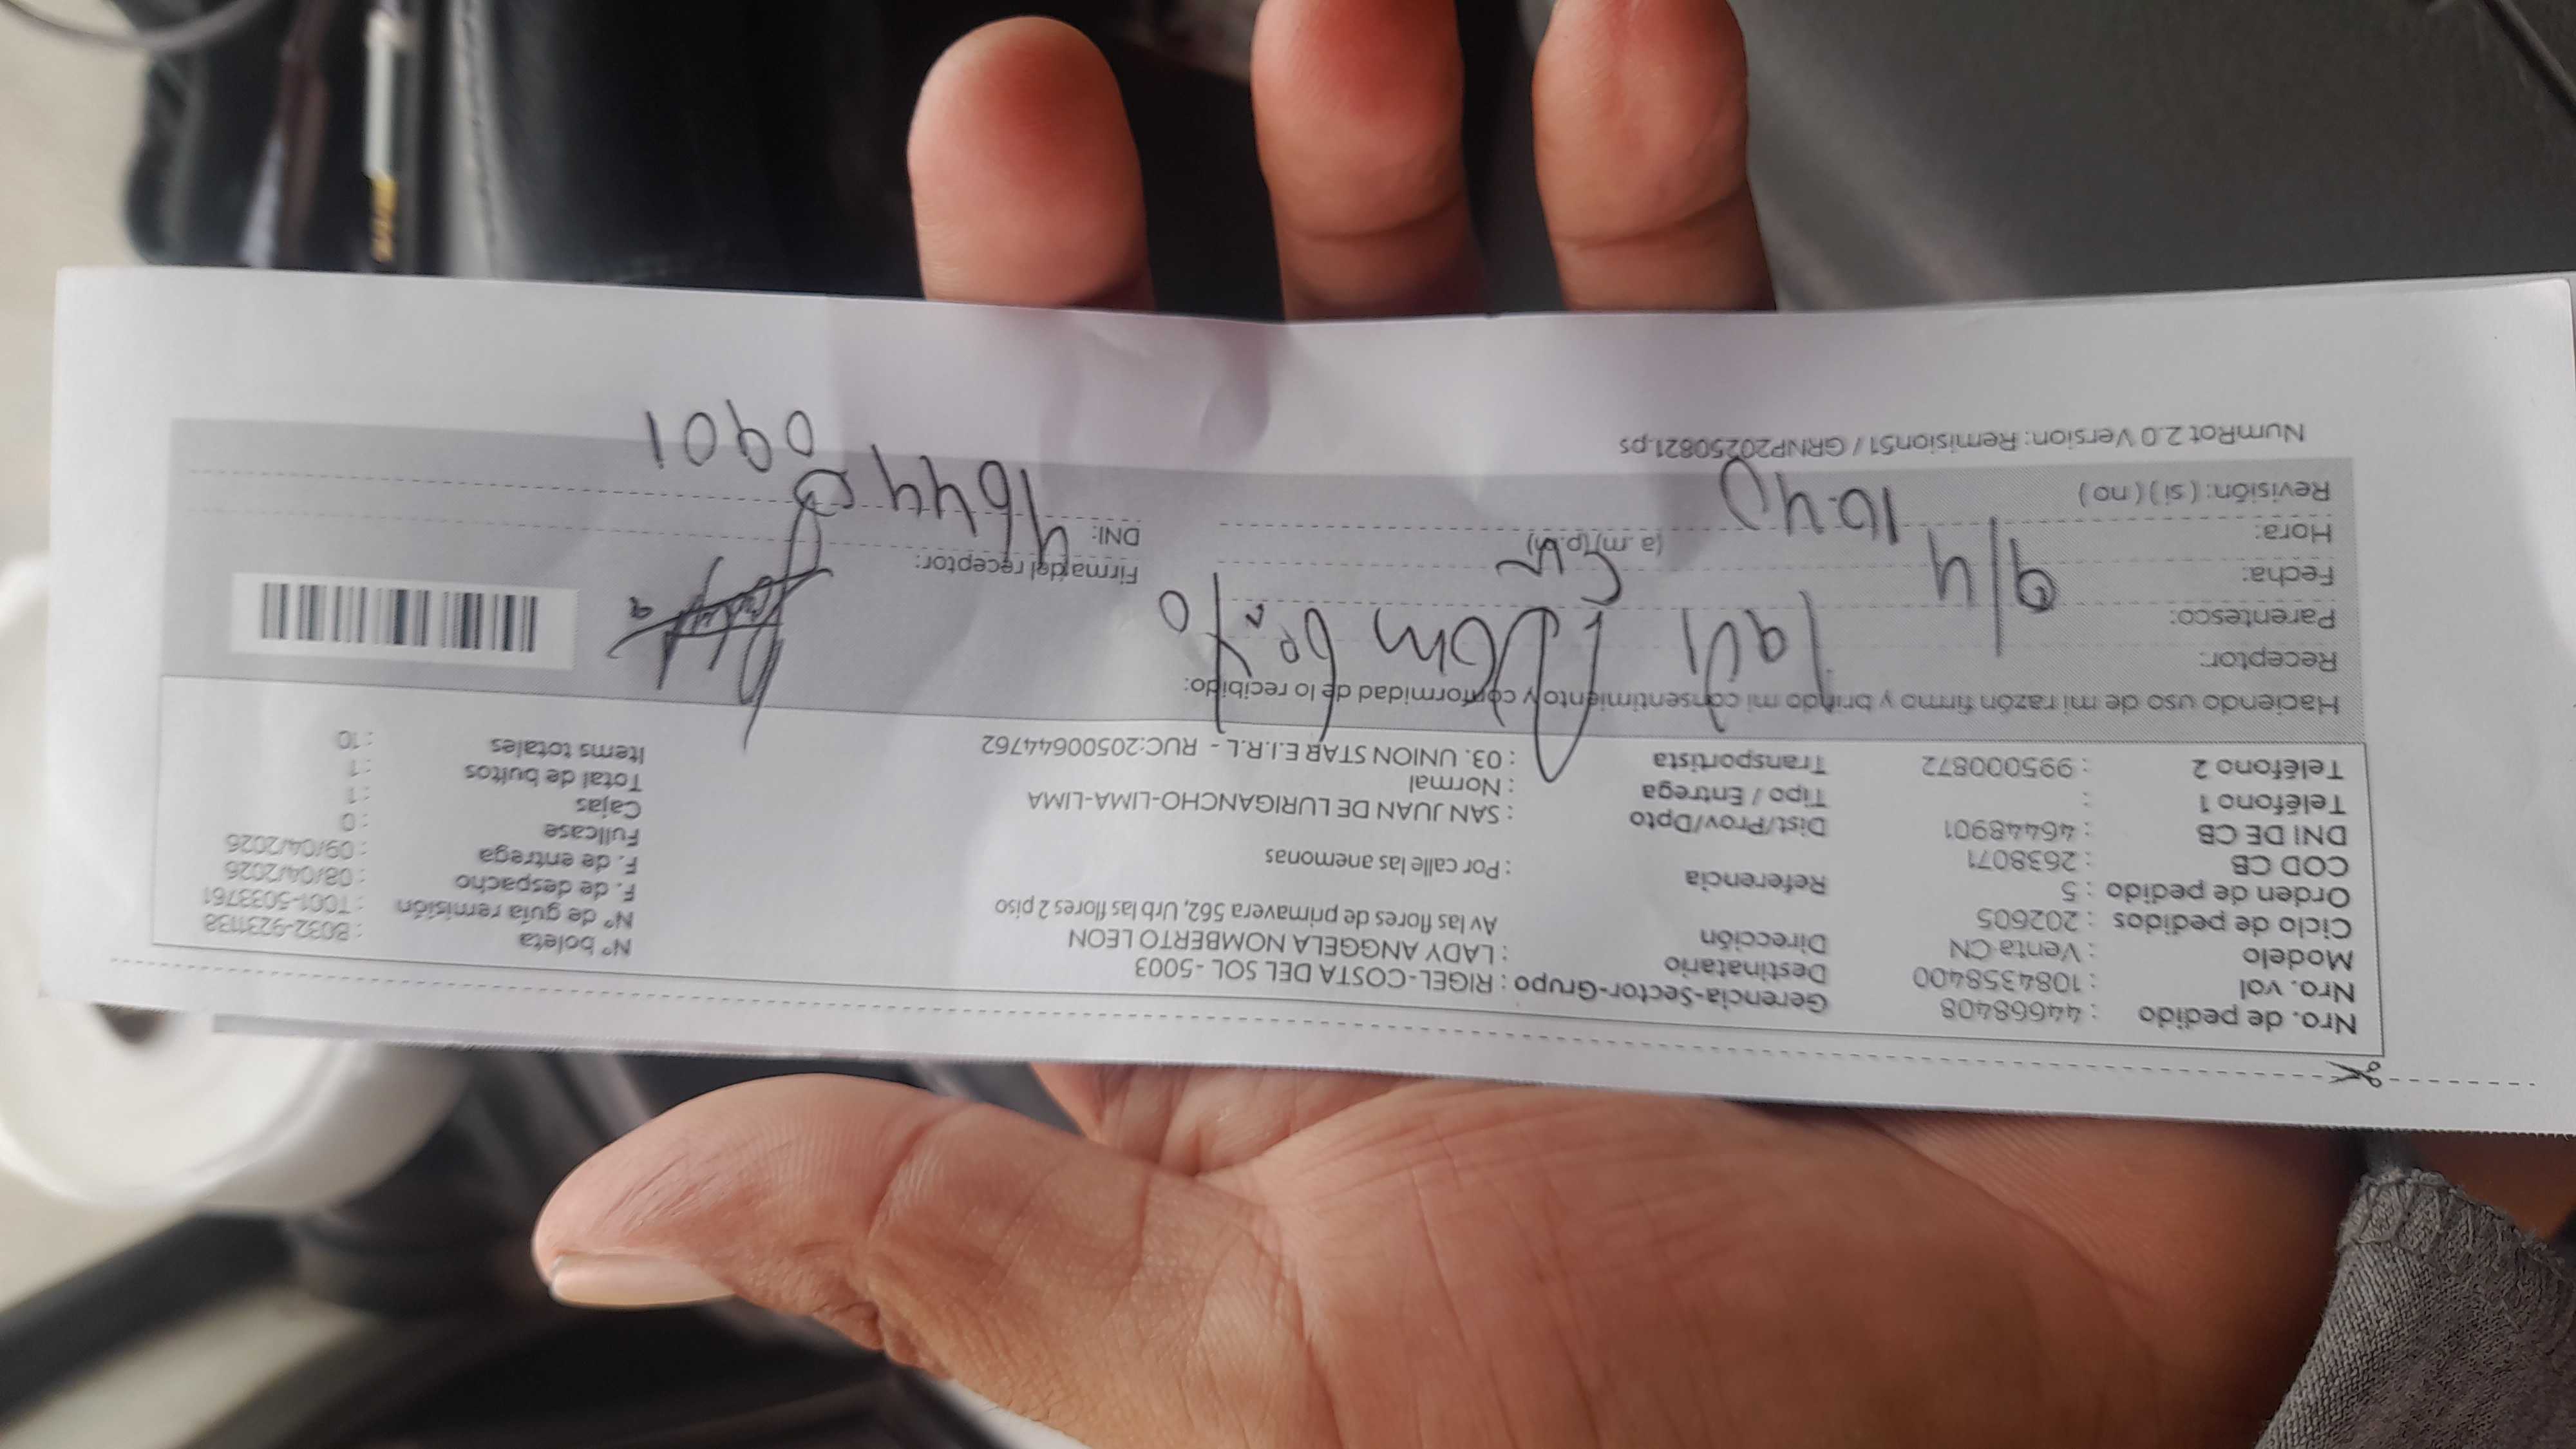 Nro. de pedido : 44668408
Nro. vol : 1084358400
Modelo : Venta CN
Ciclo de pedidos : 202605
Orden de pedido : 5
COD CB : 2638071
DNI DE CB : 46448901
Teléfono 1 :
Teléfono 2 : 995000872
Gerencia-Sector-Grupo : RIGEL-COSTA DEL SOL -5003
Destinatario : LADY ANGGELA NOMBERTO LEON
Dirección Av las flores de primavera 562, Urb las flores 2 piso
Referencia : Por calle las anemonas
Dist/Prov/Dpto : SAN JUAN DE LURIGANCHO-LIMA-LIMA
Tipo / Entrega : Normal
Transportista : 03. UNION STAR E.I.R.L - RUC:20500644762
N° boleta : B032-9231138
N° de guía remisión : T001-5033761
F. de despacho : 08/04/2026
F. de entrega : 09/04/2026
Fullcase : 0
Cajas : 1
Total de bultos : 1
Items totales : 10
Haciendo uso de mi razón firmo y brindo mi consentimiento y conformidad de lo recibido:
Receptor:
Parentesco:
Fecha: 9/4
Hora: 10:40 (a.m)(p.m)
Revisión: ( si ) ( no )
Firma del receptor:
DNI:
NumRot 2.0 Version: Remision51 / GRNP20250821.ps